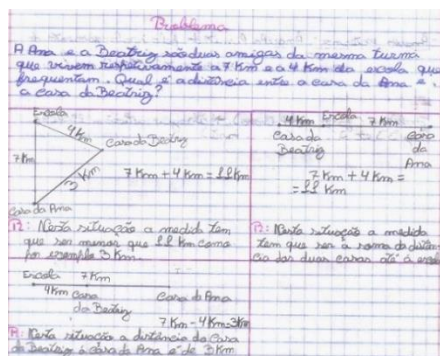 Problema
A Ana e a Beatriz são duas amigas da mesma turma
que vivem respetivamente a 7 Km e a 4 Km da escola que
frequentam. Qual é a distância entre a casa da Ana e
a casa da Beatriz?
Escola
4Km
Casa da Beatriz
7Km
3 Km
7 Km + 4 Km = 11 Km
Casa da Ana
R: Nesta situação a medida tem
que ser menor que 11 Km como
por exemplo 3 Km.
4Km Escola 7Km
Casa da Beatriz
Casa da Ana
7 Km + 4 Km =
= 11 Km
R: Nesta situação a medida
tem que ser a soma da distân-
cia das duas casas até à escola
Escola 7Km
4Km Casa da Beatriz
Casa da Ana
7 Km - 4 Km = 3Km
R: Nesta situação a distância da Casa
da Beatriz à casa da Ana é de 3 Km